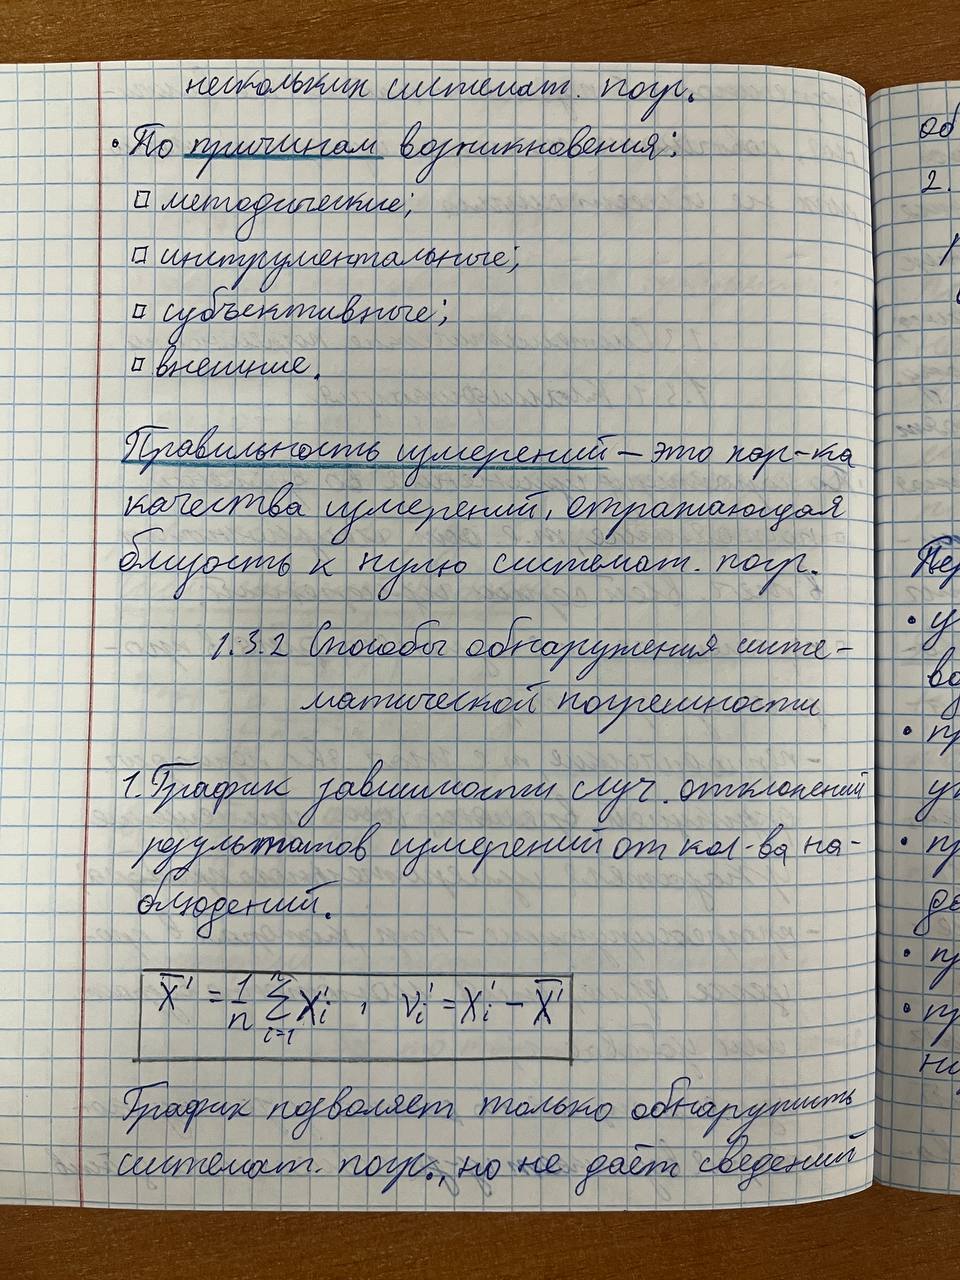 нескольких системат. погр.
• По причинам возникновения:
методические;
инструментальные;
субъективные;
внешние.
Правильность измерений – это хар-ка
качества измерений, отражающая
близость к нулю системат. погр.
1.3.2 Способы обнаружения систе-
матической погрешности
1. График зависимости случ. отклонений
результатов измерений от кол-ва на-
блюдений.
X̅' = 1/n ∑ⁿᵢ₌₁ Xᵢ' , νᵢ' = Xᵢ' – X̅'
График позволяет только обнаружить
системат. погр., но не даёт сведений
об
2.
• у
• пр
• пр
• пр
• пр